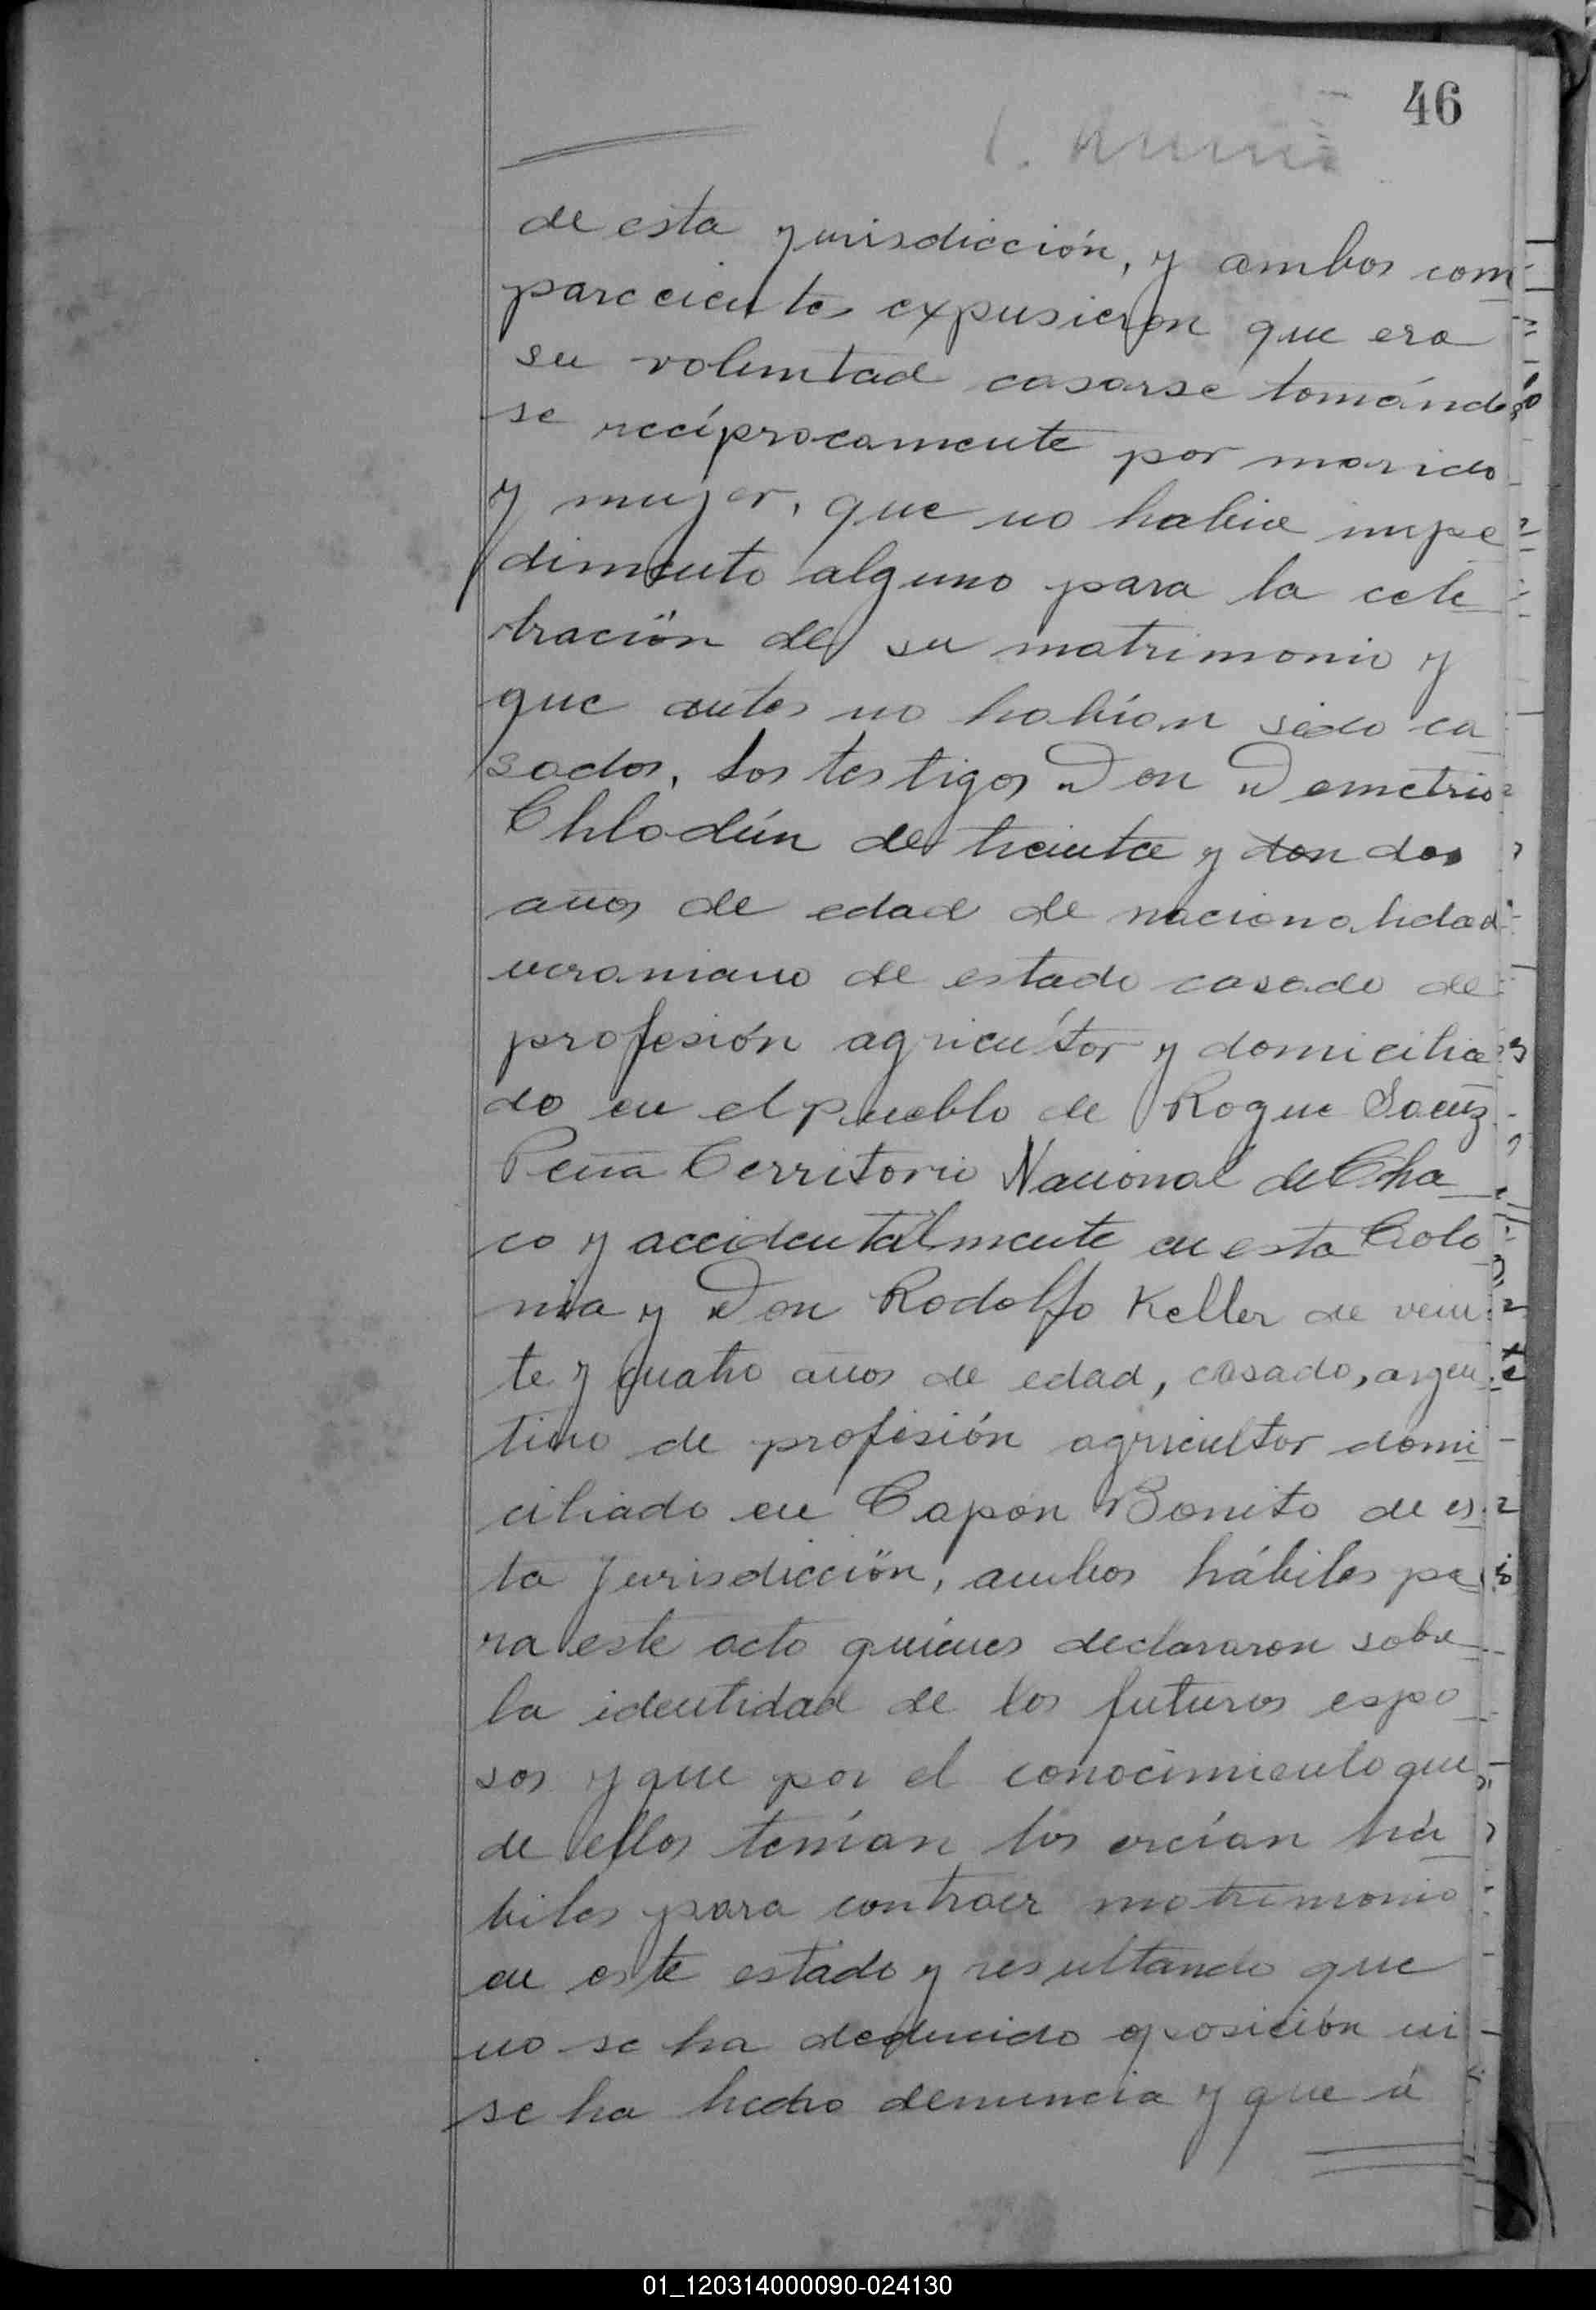 46
de esta yurisdicción, y ambos com
parecientes expusieron que era
su voluntad casarse tomándo
se recíprocamente por marido
y mujer, que no habia impe
dimento alguno para la cele
bración de su matrimonio y
que antes no habían sido ca
sados. Los testigos Don Demetrio
Chlodún de treinta y don dos
años de edad de nacionalidad
ucraniano de estado casado de
profesión agricultor y domicilia
do en el pueblo de Roque Saenz
Peña Territorio Nacional de Cha
co y accidentalmente en esta Colo
nia y Don Rodolfo Keller de vein
te y cuatro años de edad, casado, argen
tino de profesión agricultor domi
ciliado en Capón Bonito de es
ta jurisdicción, ambos hábiles pa
ra este acto quiénes declararon sobre
la identidad de los futuros espo
sos y que por el conocimiento que
de ellos tenían los creían há
biles para contraer matrimonio
en este estado y resultando que
no se ha deducido oposición ni
se ha hecho denuncia y que á
01_120314000090-024130